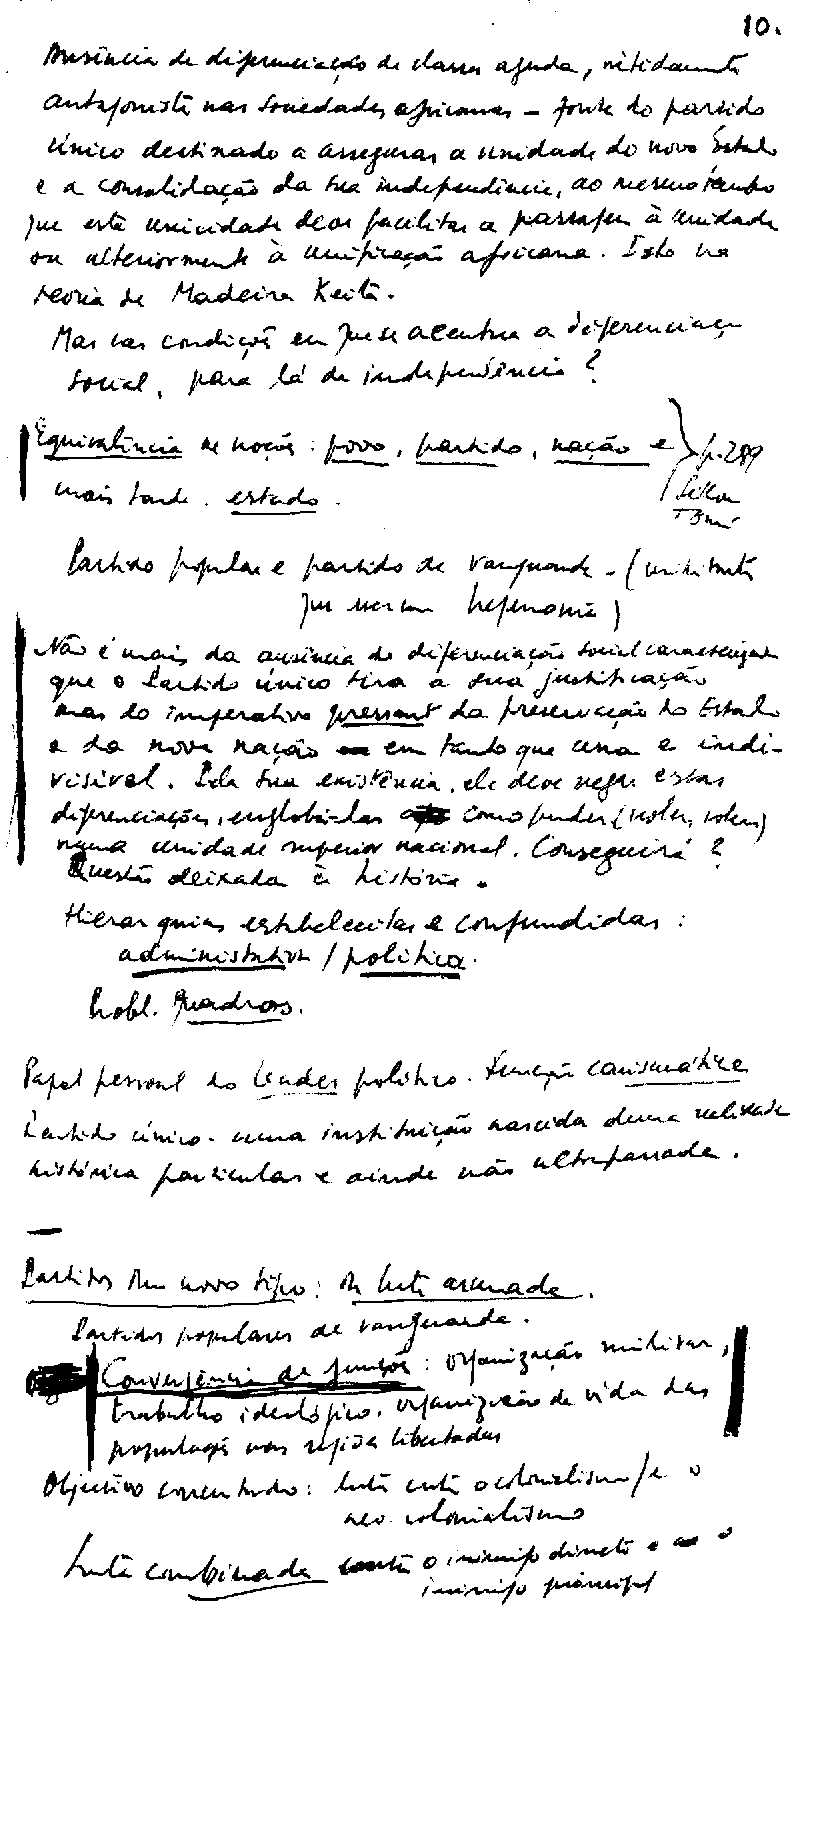 10.
Ausência de diferenciação de classes aguda, nitidamente
antagonista nas sociedades africanas – fonte do partido
único destinado a assegurar a unidade do novo Estado
e a consolidação da sua independência, ao mesmo tempo
que esta unicidade deve facilitar a passagem à unidade
ou ulteriormente à unificação africana. Isto na
teoria de Madeira Keita.
Mas nas condições em que se acentua a diferenciação
social, para lá da independência?
Equivalência de noções: povo, partido, nação e
mais tarde. estado.
p. 289
Sékou
Touré
Partido popular e partido de vanguarda – (militantes
que exercem hegemonia)
Não é mais da ausência de diferenciação social caracterizada
que o Partido único tira a sua justificação
mas do imperativo pressant da preservação do Estado
e da nova nação em tanto que una e indi-
visível. Pela sua existência, ele deve negar estas
diferenciações, englobá-las como puder (nolens, volens)
numa unidade superior nacional. Conseguirá?
Questão deixada à história.
Hierarquias estabelecidas e confundidas:
administrativa / política.
Probl. Quadros.
Papel pessoal do leader político. Função carismática
Partido único. uma instituição nascida duma realidade
histórica particular e ainda não ultrapassada.
—
Partidos dum novo tipo: da luta armada.
Partidos populares de vanguarda.
Convergência de funções: organização militar,
trabalho ideológico, organização de vida das
populações nas regiões libertadas
Objectivo concentrado: luta contra o colonialismo / e o
neo colonialismo
Luta combinada contra o inimigo directo e o
inimigo principal